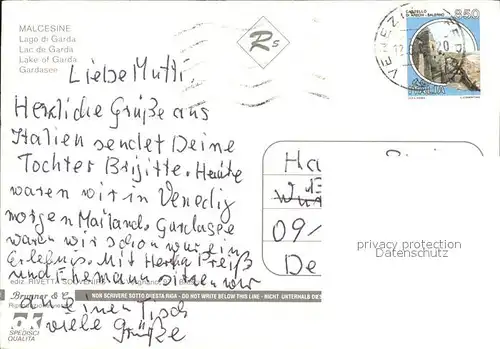 MALCESINE
Lago di Garda
Lac de Garda
Lake of Garda
Gardasee
Rs
VENEZIA
12
20
850
CASTELLO
DI ARECHI - SALERNO
ITALIA
Liebe Mutti.
Herzliche Grüße aus
Italien sendet Deine
Tochter Brigitte. Heute
waren wir in Venedig
morgen Mailand. Gardasee
waren wir schon war ein
Erlebnis. Mit Hertha Preiß
und Ehemann sitzen wir
an einem Tisch
viele Grüße
Ha
09/
De
privacy protection
Datenschutz
ediz. RIVETTA SOUVENIRS
Brunner & C.
NON SCRIVERE SOTTO QUESTA RIGA - DO NOT WRITE BELOW THIS LINE - NICHT UNTERHALB DIES
SPEDISCI
QUALITÀ